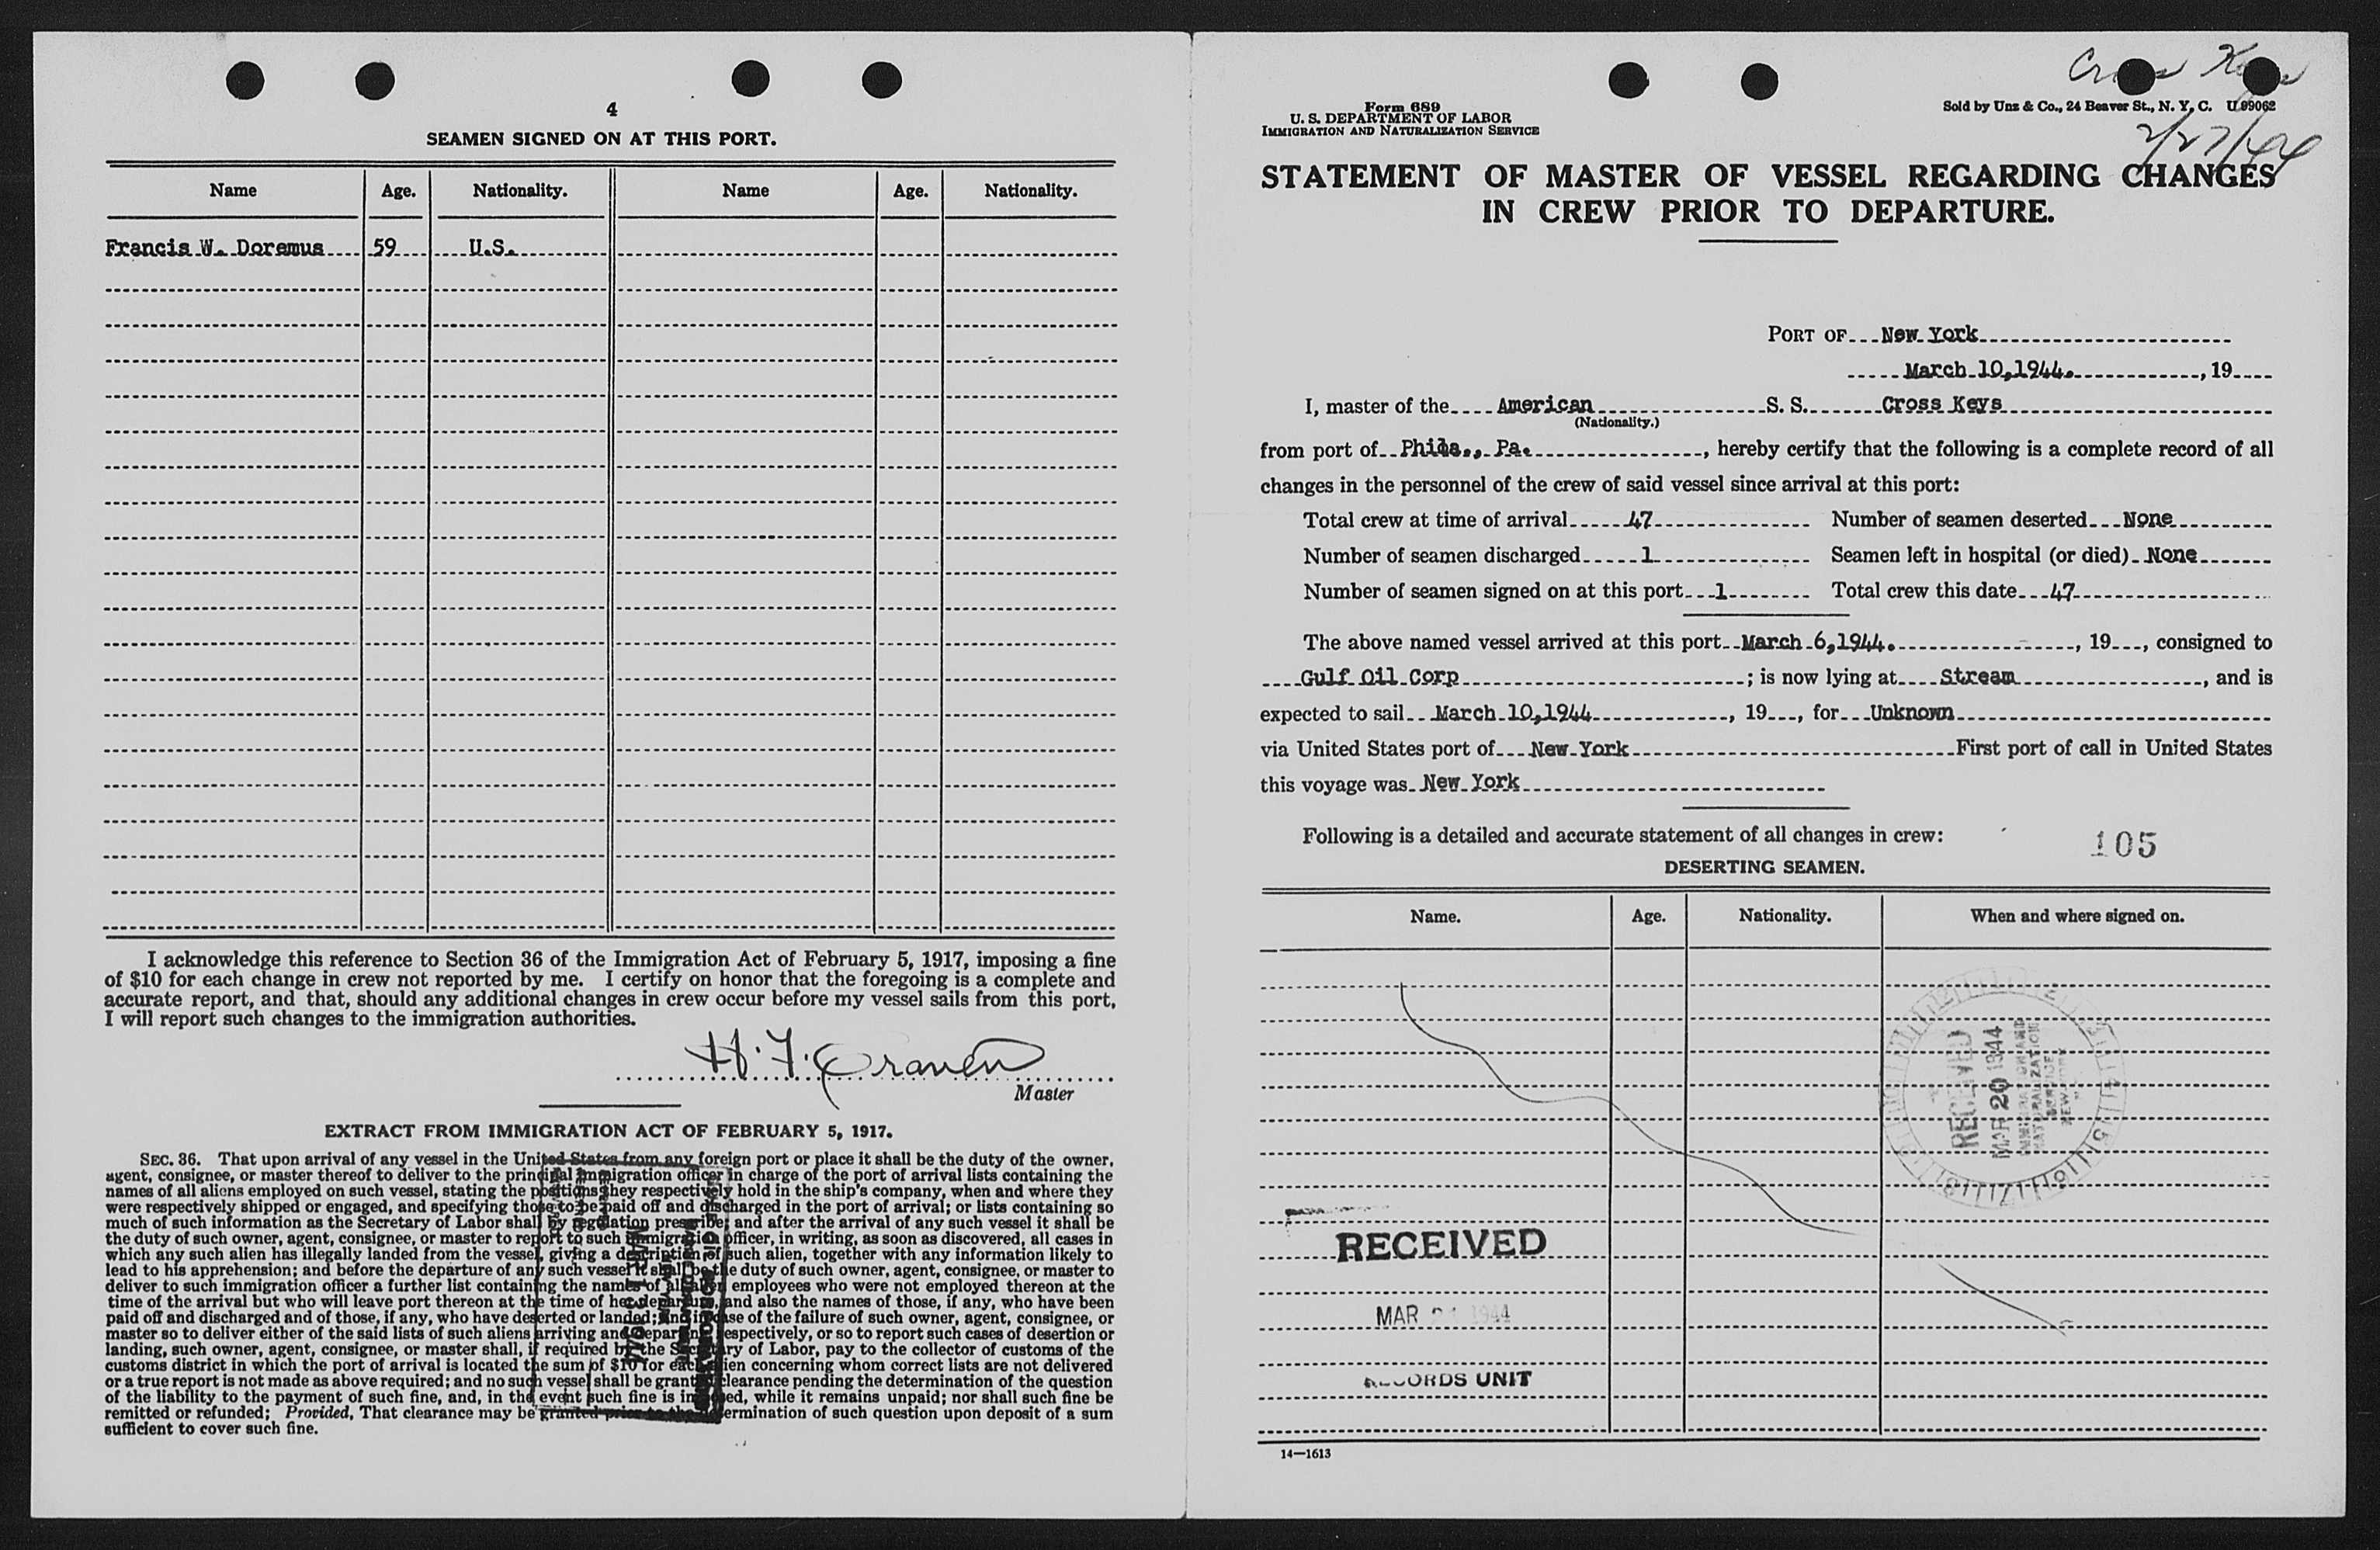 4
SEAMEN SIGNED ON AT THIS PORT.
Name Age. Nationality. Name Age. Nationality.
Francis W. Doremus 59 U.S.
I acknowledge this reference to Section 36 of the Immigration Act of February 5, 1917, imposing a fine
of $10 for each change in crew not reported by me. I certify on honor that the foregoing is a complete and
accurate report, and that, should any additional changes in crew occur before my vessel sails from this port,
I will report such changes to the immigration authorities.
H. F. Craven
Master
EXTRACT FROM IMMIGRATION ACT OF FEBRUARY 5, 1917.
SEC. 36. That upon arrival of any vessel in the United States from any foreign port or place it shall be the duty of the owner,
agent, consignee, or master thereof to deliver to the principal immigration officer in charge of the port of arrival lists containing the
names of all aliens employed on such vessel, stating the positions they respectively hold in the ship's company, when and where they
were respectively shipped or engaged, and specifying those to be paid off and discharged in the port of arrival; or lists containing so
much of such information as the Secretary of Labor shall by regulation prescribe; and after the arrival of any such vessel it shall be
the duty of such owner, agent, consignee, or master to report to such immigration officer, in writing, as soon as discovered, all cases in
which any such alien has illegally landed from the vessel, giving a description of such alien, together with any information likely to
lead to his apprehension; and before the departure of any such vessel it shall be the duty of such owner, agent, consignee, or master to
deliver to such immigration officer a further list containing the names of all alien employees who were not employed thereon at the
time of the arrival but who will leave port thereon at the time of her departure, and also the names of those, if any, who have been
paid off and discharged and of those, if any, who have deserted or landed; and in case of the failure of such owner, agent, consignee, or
master so to deliver either of the said lists of such aliens arriving and departing respectively, or so to report such cases of desertion or
landing, such owner, agent, consignee, or master shall, if required by the Secretary of Labor, pay to the collector of customs of the
customs district in which the port of arrival is located the sum of $10 for each alien concerning whom correct lists are not delivered
or a true report is not made as above required; and no such vessel shall be granted clearance pending the determination of the question
of the liability to the payment of such fine, and, in the event such fine is imposed, while it remains unpaid; nor shall such fine be
remitted or refunded; Provided, That clearance may be granted prior to the determination of such question upon deposit of a sum
sufficient to cover such fine.
Cross Keys
Form 689
U. S. DEPARTMENT OF LABOR
IMMIGRATION AND NATURALIZATION SERVICE
Sold by Unz & Co., 24 Beaver St., N. Y. C. U 99062
2/27/44
STATEMENT OF MASTER OF VESSEL REGARDING CHANGES
IN CREW PRIOR TO DEPARTURE.
PORT OF New York
March 10,1944. , 19
I, master of the American S. S. Cross Keys
(Nationality.)
from port of Phila., Pa. , hereby certify that the following is a complete record of all
changes in the personnel of the crew of said vessel since arrival at this port:
Total crew at time of arrival 47 Number of seamen deserted None
Number of seamen discharged 1 Seamen left in hospital (or died) None
Number of seamen signed on at this port 1 Total crew this date 47
The above named vessel arrived at this port March 6,1944. , 19 , consigned to
Gulf Oil Corp ; is now lying at Stream , and is
expected to sail March 10,1944 , 19 , for Unknown
via United States port of New York First port of call in United States
this voyage was New York
Following is a detailed and accurate statement of all changes in crew:
105
DESERTING SEAMEN.
Name. Age. Nationality. When and where signed on.
RECEIVED
MAR 20 1944
IMMIGRATION AND
NATURALIZATION
SERVICE
NEW YORK
RECEIVED
MAR 1944
RECORDS UNIT
14—1613